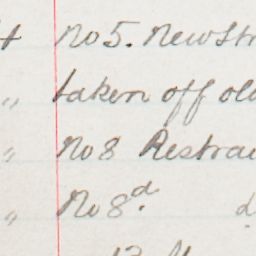 No 5. New Str
„ taken off old
„ No 8 Restrai
„ No 8d. d